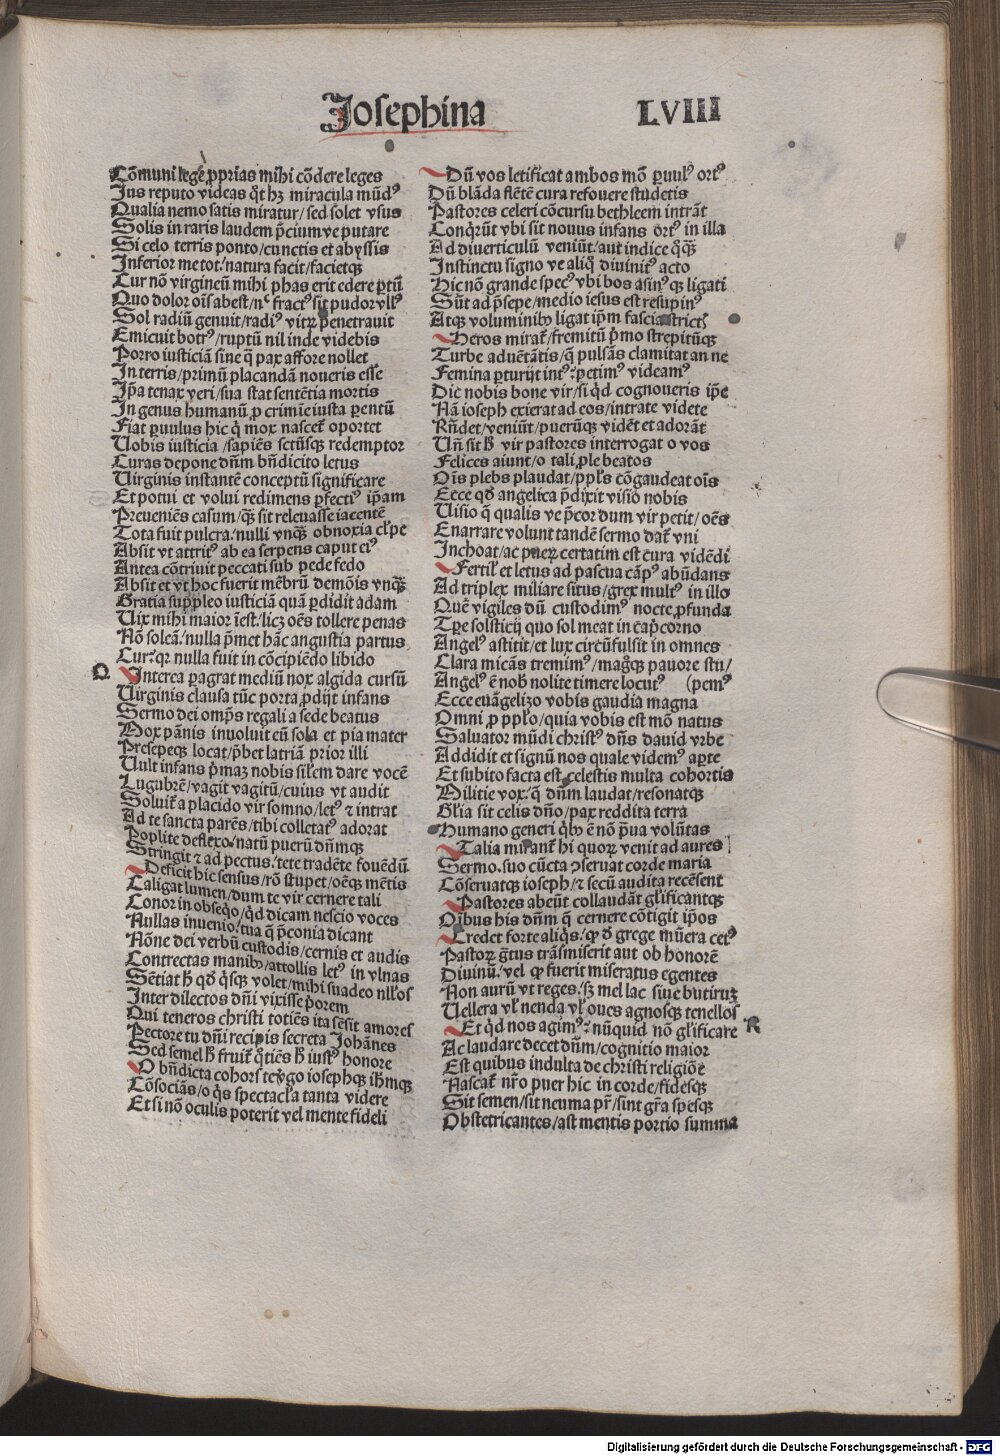 Josephina
LVIII
Cōmuni legē ꝓprias mihi cōdere leges
Jus reputo videas qͥt hꝫ miracula mūdꝰ
Qualia nemo satis miratur/sed solet vsus
Solis in raris laudem p̄cium ve putare
Si celo terris ponto/cunctis et abyssis
Inferior me tot/natura facit/facietqꝫ
Cur nō virgineū mihi phas erit edere ꝑtū
Quo dolor oīs abest/nᶜ fractꝰ sit pudor vllꝰ
Sol radiū genuit/radiꝰ vitꝝ penetrauit
Emicuit botrꝰ/ruptū nil inde videbis
Porro iusticiā sine q̄ pax affore nollet
In terris/primū placandā noueris esse
Ip̄a tenax veri/sua stat sentētia mortis
In genus humanū ꝓ crimīe iusta ꝑentū
Fiat ꝑuulus hic q̇ mox nascet̄ oportet
Uobis iusticia /sapiēs sctūsqꝫ redemptor
Curas depone dn̄m bn̄dicito letus
Uirginis instantē conceptū significare
Et potui et volui redimens ꝑfectiꝰ ip̄am
Preueniēs casum/qꝫ sit releuasse iacentē
Tota fuit pulcra/nulli vnqꝫ obnoxia cl̄pe
Absit vt attritꝰ ab ea serpens caput eiꝰ
Antea cōtriuit peccati sub pede fedo
Absit et vt hoc fuerit mēbrū demōis vnqꝫ
Gratia suppleo iusticiā quā ꝑdidit adam
Uix mihi maior īest/licꝫ oēs tollere penas
Nō soleā/nulla p̄met hāc angustia partus
Cur?qꝛ nulla fuit in cōcipiēdo libido
Q
Interea ꝑagrat mediū nox algida cursū
Uirginis clausa tūc porta ꝓdijt infans
Sermo dei omp̄s regali a sede beatus
Mox pānis inuoluit eū sola et pia mater
Presepeqꝫ locat/p̄bet latriā prior illi
Uult infans p̄maꝫ nobis sil̄em dare vocē
Lugubrē/vagit vagitū/cuius vt audit
Soluit̄ a placido vir somno/letꝰ ⁊ intrat
Ad te sancta parēs/tibi colletatꝰ adorat
Poplite deflexo/natū puerū dn̄mqꝫ
Stringit ⁊ ad pectus/te te tradēte fouēdū
Deficit hic sensus/rō stupet/oēqꝫ mētis
Caligat lumen/dum te vir cernere tali
Conor in obseq̇o/qͥd dicam nescio voces
Nullas inuenio/tua q̄ p̄conia dicant
Nōne dei verbū custodis/cernis et audis
Contrectas manibꝫ/attollis letꝰ in vlnas
Sētiat h̄ qd̄ q̇sqꝫ volet/mihi suadeo nll̄os
Inter dilectos dn̄i vixisse p̄orem
Qui teneros christi totiēs ita sēsit amores
Pectore tu dn̄i recipis secreta Johānes
Sed semel h̄ fruit̄ q̇tiēs h̄ iustꝰ honore
O bn̄dicta cohors te ꝟgo iosephqꝫ ih̄mqꝫ
Cōsociās/o q̇s spectacl̄a tanta videre
Et si nō oculis poterit vel mente fideli
Dū vos letificat ambos mō ꝑuulꝰ ortꝰ
Dū blāda flētē cura refouere studetis
Pastores celeri cōcursu bethleem intrāt
Conq̇rūt vbi sit nouus infans ortꝰ in illa
Ad diuerticulū veniūt/aut indice q̇qꝫ
Instinctu signo ve aliq̇ diuinitꝰ acto
Hic nō grande specꝰ vbi bos asinꝰqꝫ ligati
Sūt ad p̄sepe/medio iesus est resupinꝰ
Atqꝫ voluminibꝫ ligat ip̄m fascia strictꝰ
Heros mirat̄/fremitū p̄mo strepitūqꝫ
Turbe aduētātis/q̄ pulsās clamitat an ne
Femina ꝑturijt intꝰ?ꝑetimꝰ videamꝰ
Dic nobis bone vir/si qͥd cognoueris ip̄e
Nā ioseph exierat ad eos/intrate videte
Rn̄det/veniūt/puerūqꝫ vidēt et adorāt
Un̄ sit h̄ vir pastores interrogat o vos
Felices aiunt/o tali ꝓle beatos
Oīs plebs plaudat/ppl̄s cōgaudeat oīs
Ecce qd̄ angelica p̄dixit visio nobis
Uisio q̄ qualis ve p̄cor dum vir petit/oēs
Enarrare volunt tandē sermo dat̄ vni
Inchoat/ac puer certatim est cura vidēdi
Fertil̄ et letus ad pascua cāpꝰ abūdans
Ad triplex miliare situs/grex multꝰ in illo
Quē vigiles dū custodimꝰ nocte ꝓfunda
Tꝑe solsticij quo sol meat in cap̄corno
Angelꝰ astitit/et lux circūfulsit in omnes
Clara micās tremimꝰ/mag̊qꝫ pauore stu/
Angelꝰ ē nob̄ nolite timere locutꝰ (pemꝰ
Ecce euāgelizo vobis gaudia magna
Omni ꝓ ppl̄o/quia vobis est mō natus
Saluator mūdi christꝰ dn̄s dauid vrbe
Addidit et signū nos quale videmꝰ aꝑte
Et subito facta est celestis multa cohortis
Militie vox/q̄ dn̄m laudat/resonatqꝫ
Gl̄ia sit celis dn̄o/pax reddita terra
Humano generi q̇bꝫ ē nō p̄ua volūtas
Talia mirant̄ hi quoꝝ venit ad aures
Sermo.suo cūcta ꝯseruat corde maria
Cōseruatqꝫ ioseph/⁊ secū audita recēsent
Pastores abeūt collaudāt gl̄ificantqꝫ
Oībus his dn̄m q̄ cernere cōtigit ip̄os
Credet forte aliq̇s/ꝙ d̄ grege mūera cetꝰ
Pastoꝝ g̊tus trāsmiserit aut ob honorē
Diuinū/vel ꝙ fuerit miseratus egentes
Non aurū vt reges/sꝫ mel lac siue butiruꝫ
Uellera vl̄ nenda vl̄ oues agnosqꝫ tenellos
Et qͥd nos agimꝰ?nūquid nō gl̄ificare
R
Ac laudare decet dn̄m/cognitio maior
Est quibus indulta de christi religiōe
Nascat̄ nr̄o puer hic in corde/fidesqꝫ
Sit semen/sit neuma pr̄/sint gr̄a spesqꝫ
Obstetricantes/ast mentis portio summa
Digitalisierung gefördert durch die Deutsche Forschungsgemeinschaft - DFG